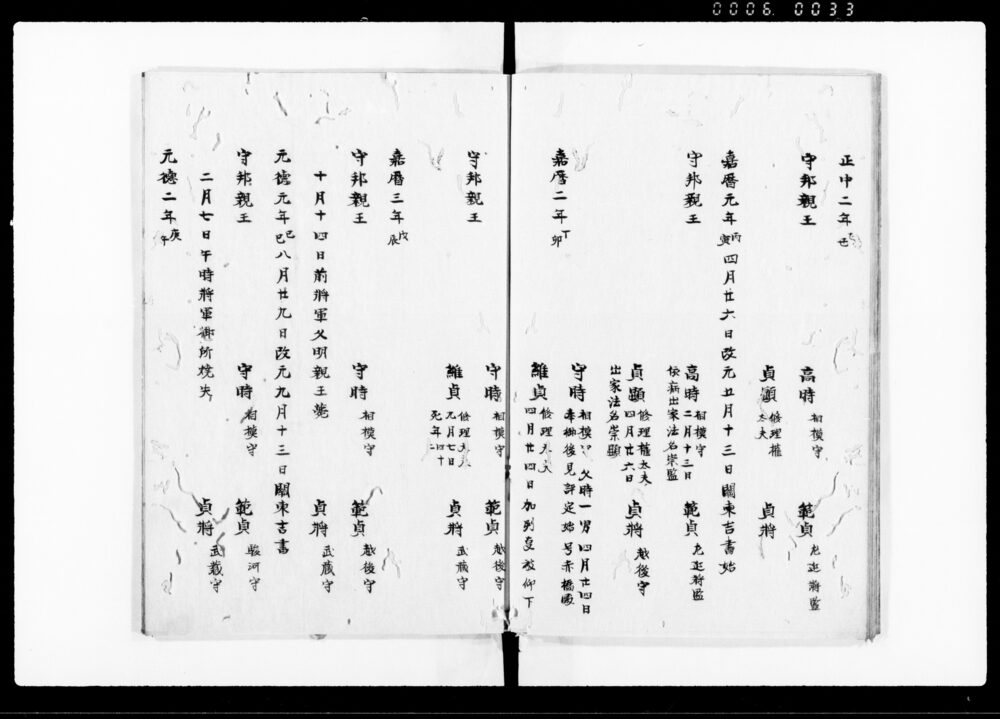 0006. 0033
正中二年乙丑
守邦親王
高時 相模守
範貞 左近将監
貞顕 修理権大夫
貞将
嘉暦元年丙寅四月廿六日改元五月十三日關東吉書始
守邦親王
高時 相模守 二月十三日 依病出家法名崇鑑
範貞 左近将監
貞顕 修理権大夫 四月廿六日 出家法名崇顕
貞将 越後守
守時 相模守 父時一男四月廿四日
奉御後見評定始号赤橋
維貞 修理大夫
四月廿四日加判 被仰下
嘉暦二年丁卯
守邦親王
守時 相模守
範貞 越後守
維貞 修理大夫 九月七日 死年四十二
貞将 武蔵守
嘉暦三年戊辰
守邦親王
守時 相模守
範貞 越後守
十月十四日前將軍久明親王薨
貞将 武蔵守
元德元年己巳八月廿九日改元九月十三日關東吉書
守邦親王
守時 相模守
範貞 駿河守
二月七日午時將軍御所焼失
貞将 武蔵守
元德二年庚午